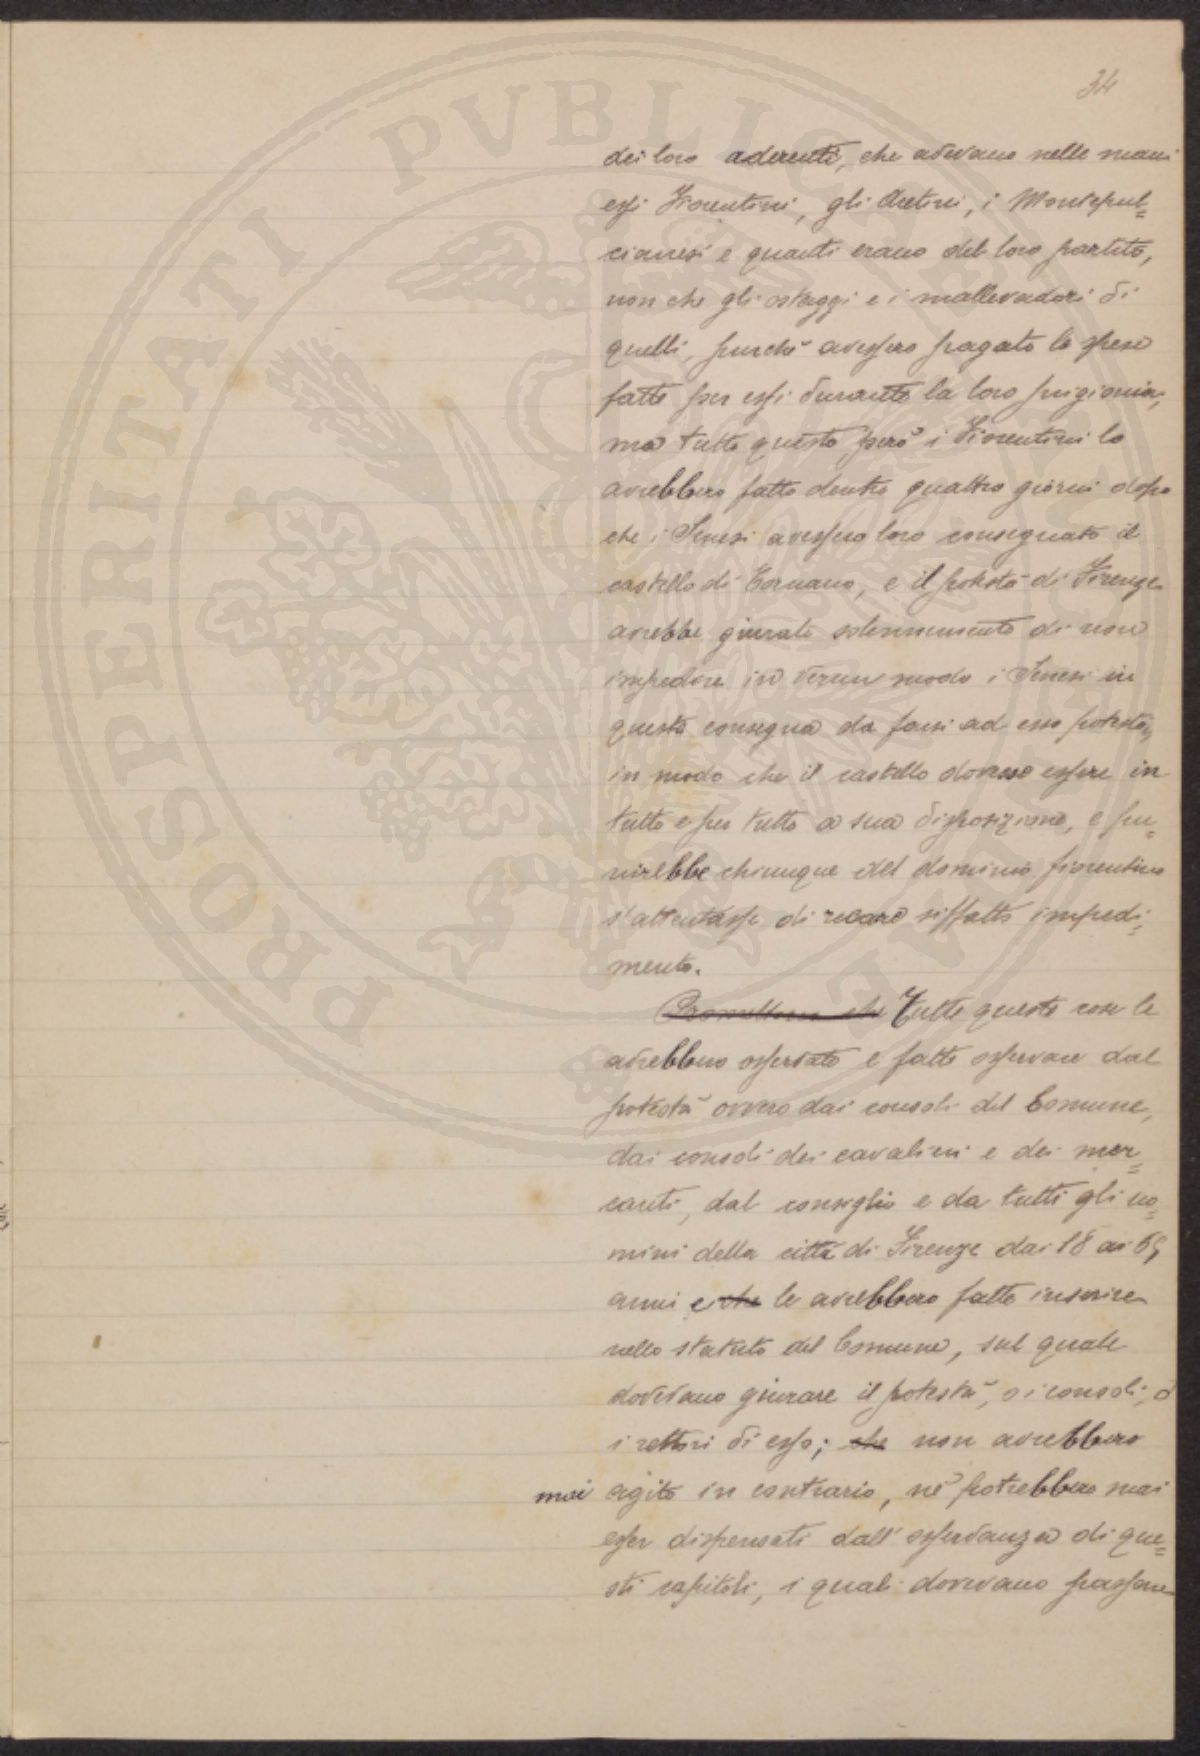 34
dei loro aderenti, che avevano nelle mani
essi Fiorentini, gli Aretini, i Montepul=
cianesi e quanti erano del loro partito,
non che gli ostaggi e i mallevadori di
quelli, purchè avessero pagato le spese
fatte per essi durante la loro prigionia,
ma tutto questo però i Fiorentini lo
avrebbero fatto dentro quattro giorni dopo
che i Senesi avessero loro consegnato il
castello di Tornano, e il potestà di Firenze
avrebbe giurato solennemente di non
impedire in verun modo i Senesi in
questa consegna da farsi ad esso potestà,
in modo che il castello dovesse essere in
tutto e per tutto a sua disposizione, e pu=
nirebbe chiunque del dominio fiorentino
s'attentasse di recare siffatto impedi=
mento.
Promettono che Tutte queste cose le
avrebbero osservato e fatte osservare dal
potestà ovvero dai consoli del Comune,
dai consoli dei cavalieri e dei mer=
canti, dal consiglio e da tutti gli uo=
mini della città di Firenze dai 18 ai 65
anni e che le avrebbero fatte inserire
nello statuto del Comune, sul quale
dovevano giurare il potestà, o i consoli, o
i rettori di esso; che non avrebbero
mai agito in contrario, nè potrebbero mai
esser dispensati dall'osservanza di que=
sti capitoli, i quali dovevano passare
PROSPERITATI PVBLICAE